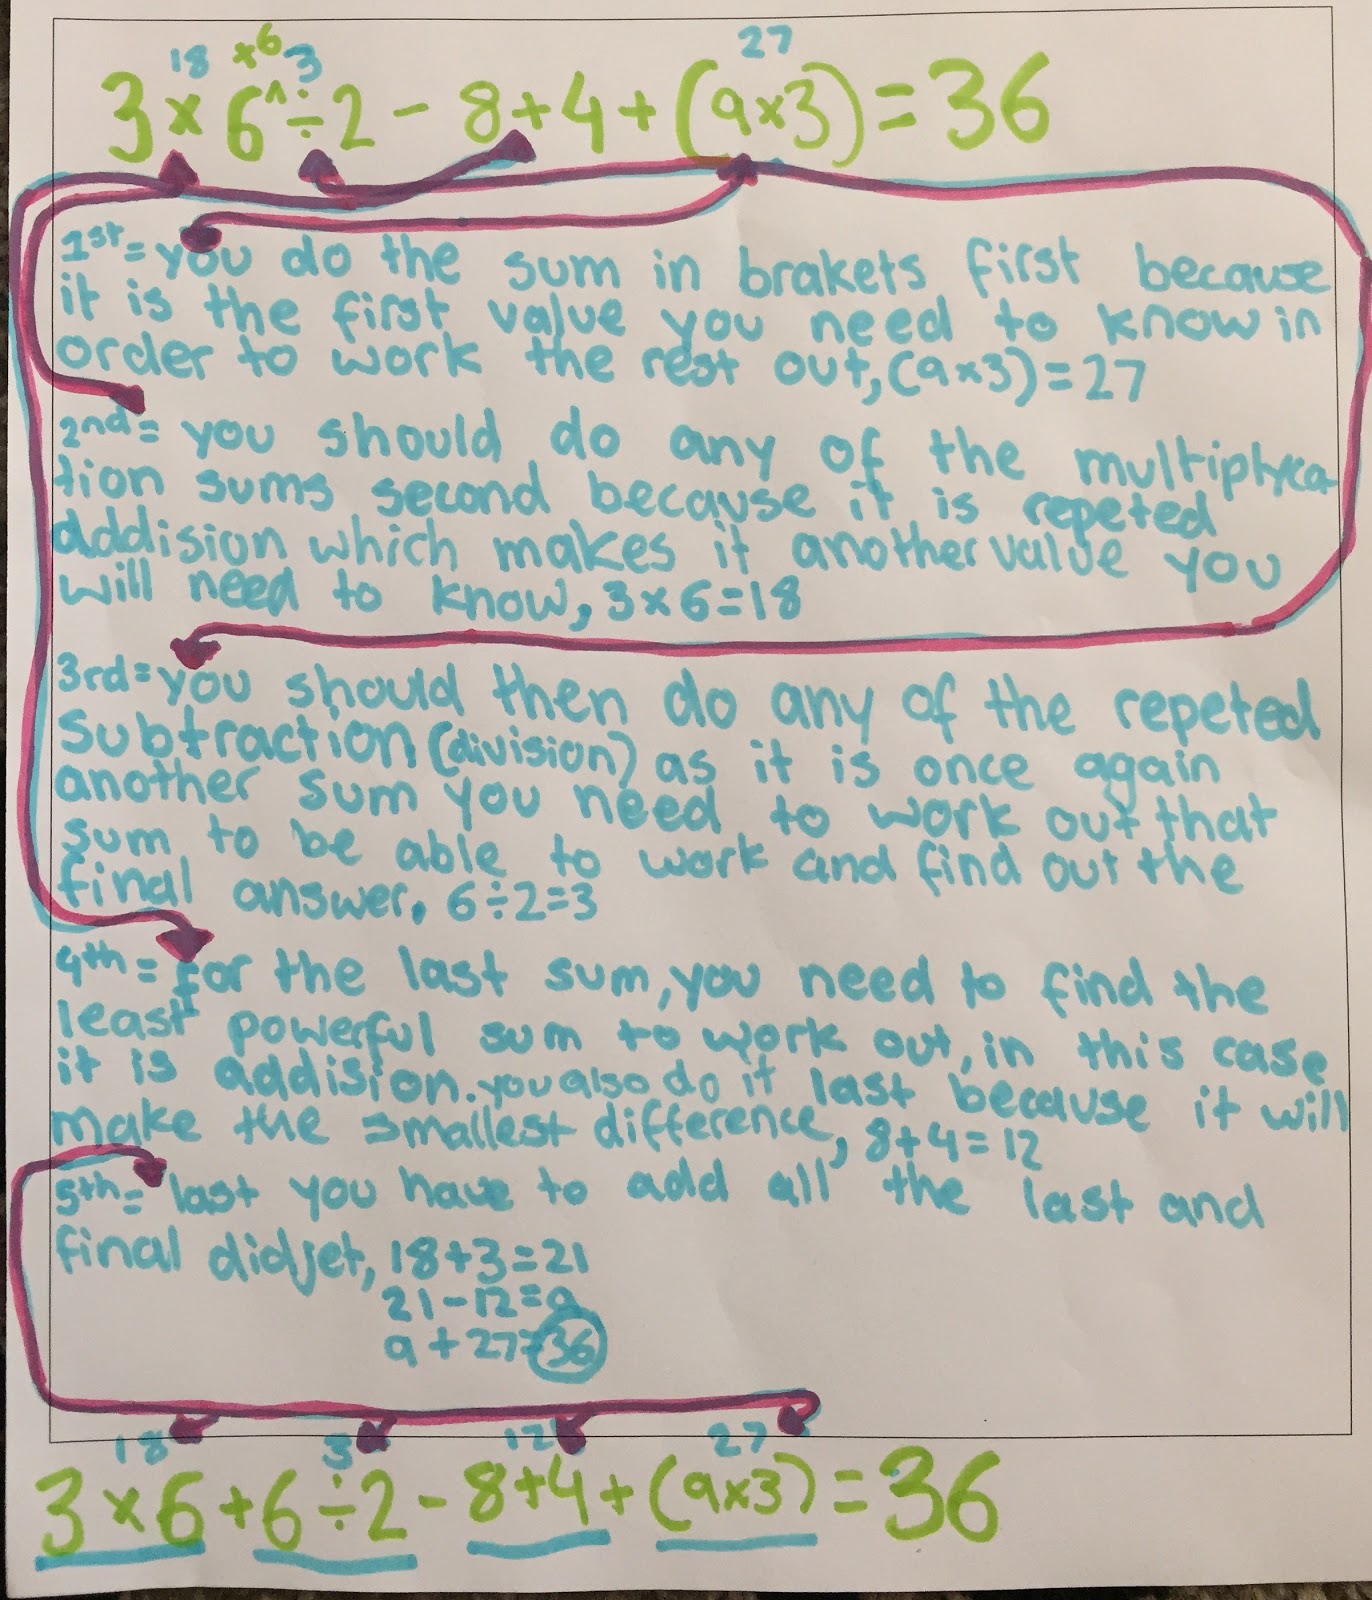 18 +6 3 27
3 × 6 ^ ÷ 2 - 8 + 4 + (9×3) = 36
1st = you do the sum in brakets first because
it is the first value you need to know in
order to work the rest out, (9×3) = 27
2nd = you should do any of the multiplyca
tion sums second because it is repeted
addision which makes it another value you
will need to know, 3×6=18
3rd = you should then do any of the repeted
subtraction (division) as it is once again
another sum you need to work out that
sum to be able to work and find out the
final answer, 6÷2=3
4th = for the last sum, you need to find the
least powerful sum to work out, in this case
it is addision. you also do it last because it will
make the smallest difference, 8+4=12
5th = last you have to add all the last and
final didjet, 18+3=21
21-12=9
9+27=36
18 3 12 27
3×6+6÷2-8+4+(9×3)=36